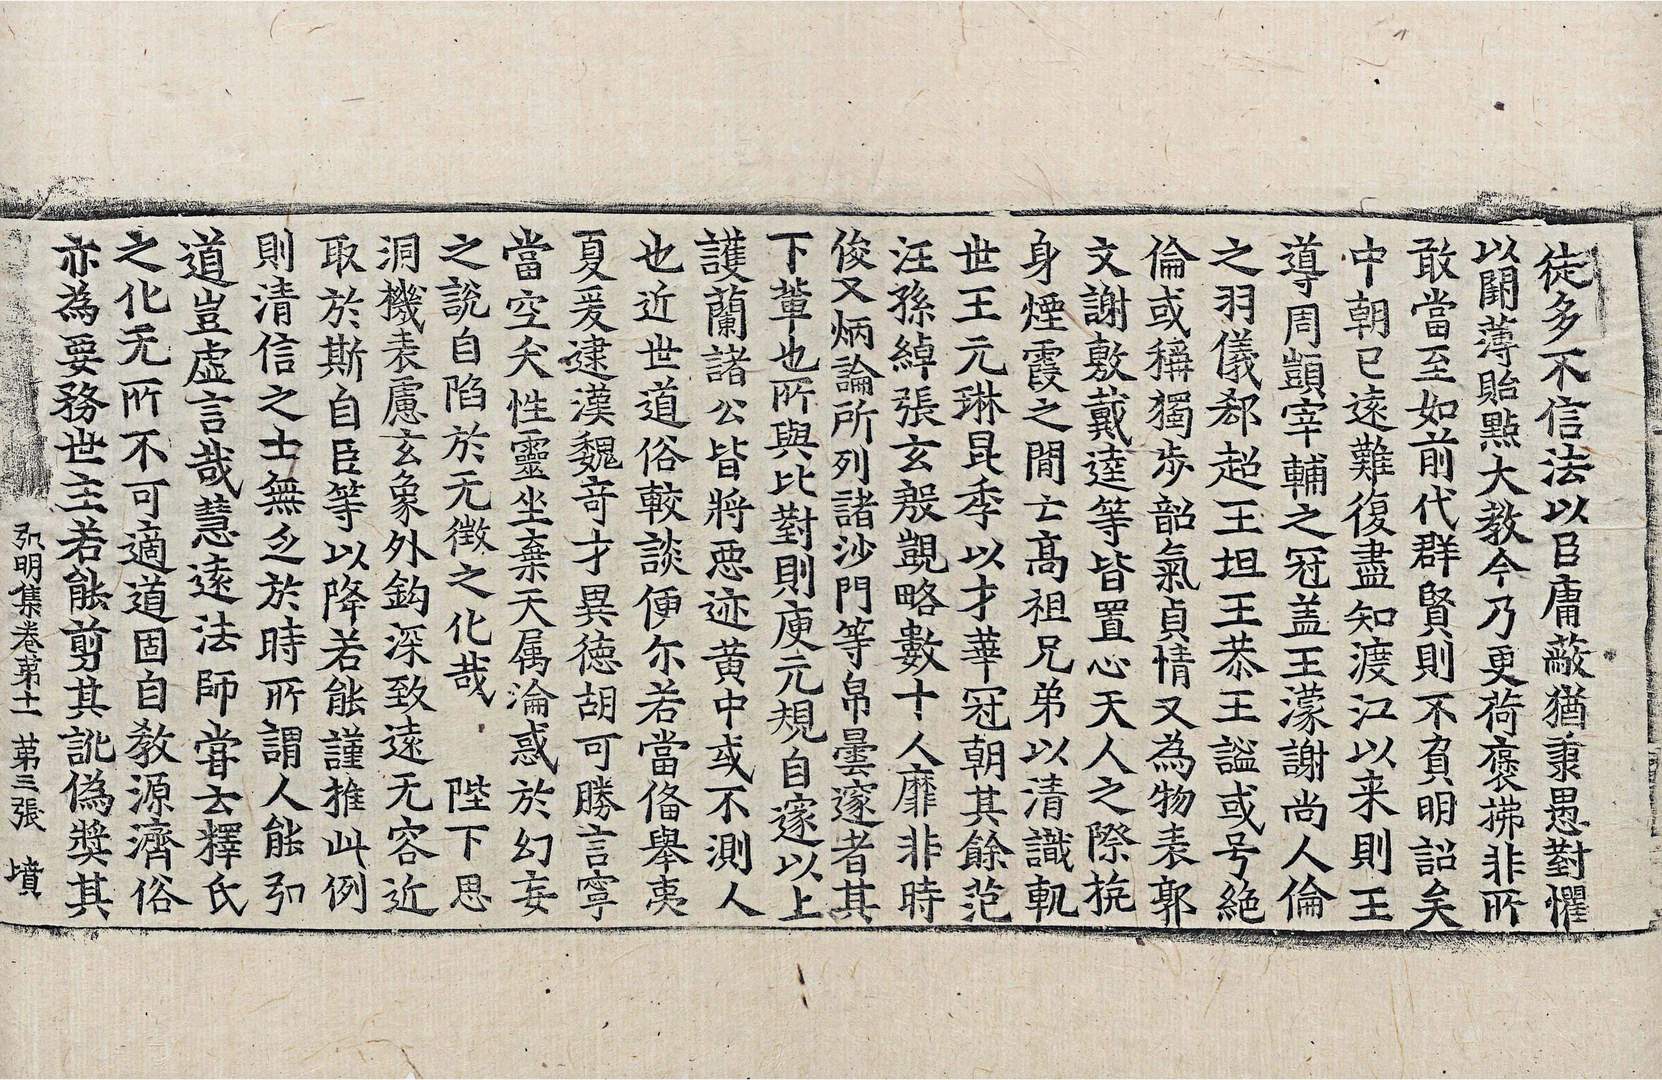 徒多不信法以臣庸蔽猶秉愚對懼
以闕薄貽點大教今乃更荷褒拂非所
敢當至如前代群賢則不負明詔矣
中朝已遠難復盡知渡江以来則王
導周顗宰輔之冠盖王濛謝尚人倫
之羽儀郄超王坦王恭王謐或号絶
倫或稱獨步韶氣貞情又為物表郭
文謝敷戴逵等皆置心天人之際抗
身煙霞之間亡髙祖兄弟以清識軌
世王元琳昆季以才華冠朝其餘范
汪孫綽張玄殷覬略數十人靡非時
俊又炳論所列諸沙門等帛曇邃者其
下輩也所與比對則庾元規自邃以上
護蘭諸公皆將亞迹黄中或不測人
也近世道俗較談便尔若當備舉夷
夏爰逮漢魏竒才異德胡可勝言寧
當空夭性靈坐棄天属淪惑於幻妄
之說自陷於无徵之化哉 陛下思
洞機表慮玄象外鈎深致遠无容近
取於斯自臣等以降若能謹推此例
則清信之士無乏於時所謂人能弘
道豈虚言哉慧遠法師甞云釋氏
之化无所不可適道固自教源濟俗
亦為要務世主若能剪其訛偽獎其
弘明集卷苐十一 苐三張 墳